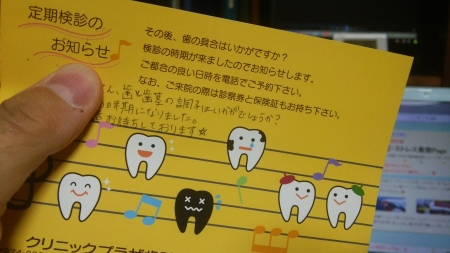 定期検診の
お知らせ
その後、歯の具合はいかがですか？
検診の時期が来ましたのでお知らせします。
ご都合の良い日時を電話でご予約下さい。
なお、ご来院の際は診察券と保険証もお持ち下さい。
さん、歯と歯茎の調子はいかがでしょうか？
時期になりました。
お待ちしております☆
クリニックプラザ